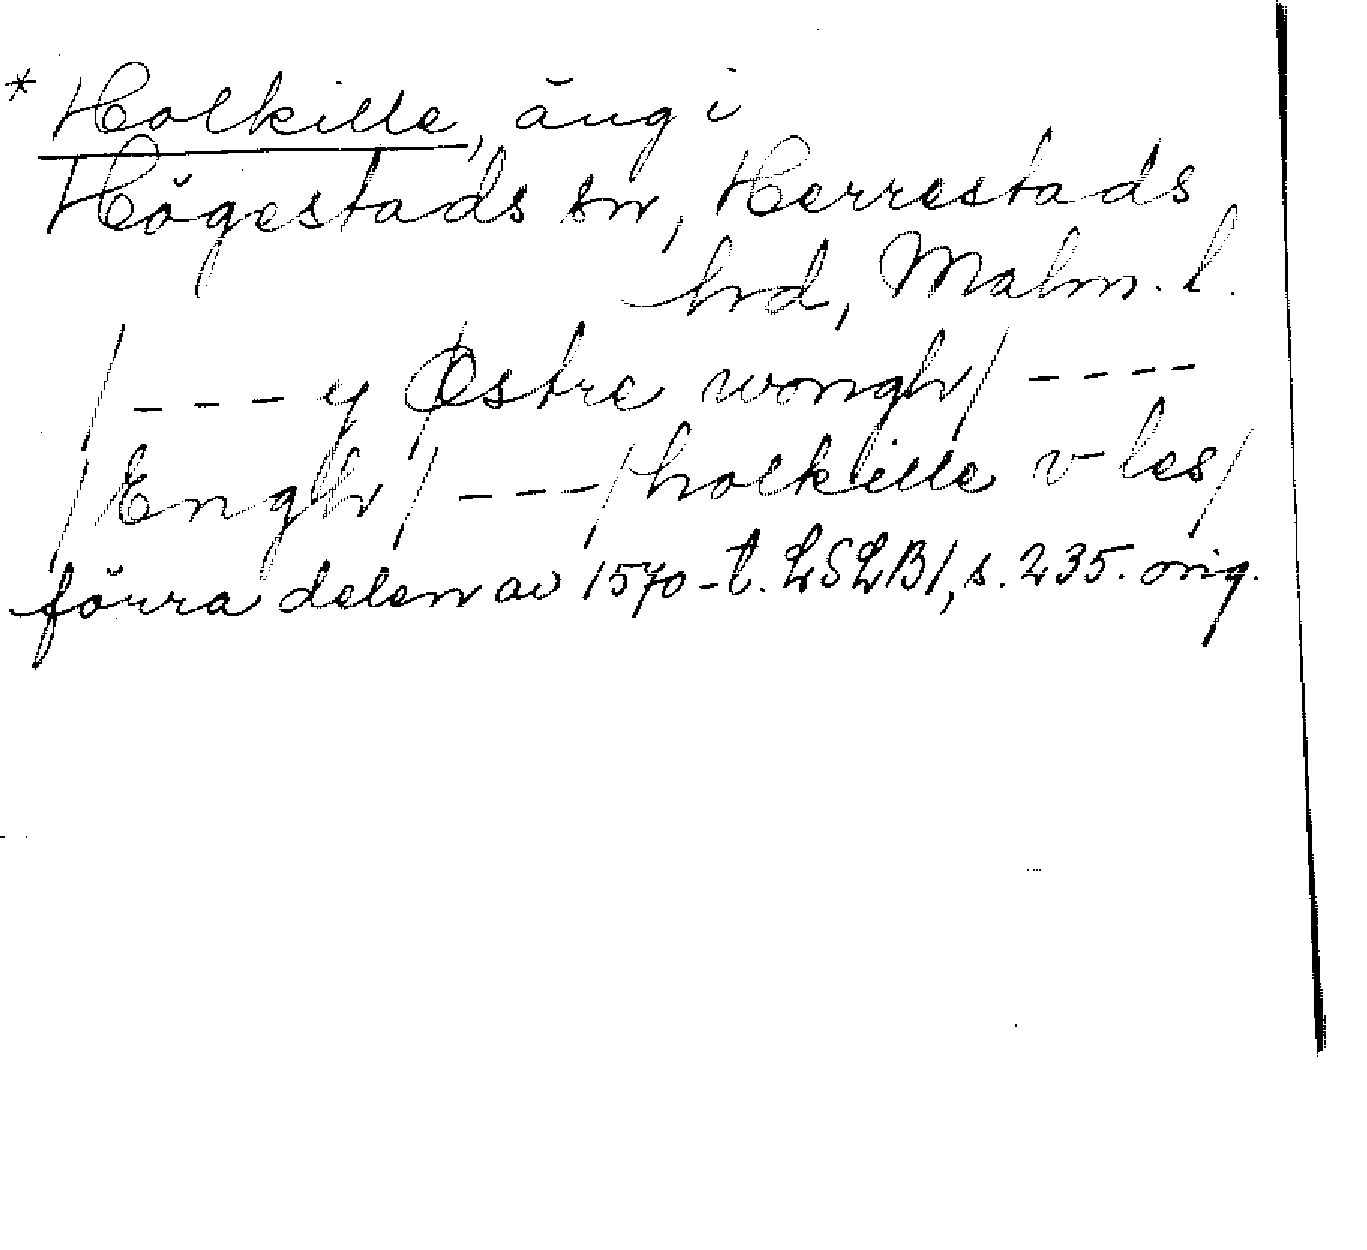 * Holkille, äng i
Högestads sn, Herrestads
hrd, Malm. l.
/ - - - y Østre wongh / - - - -
/ Engh / - - - / holkille v les /
förra delen av 1570-t. LSLB1, s. 235. orig.